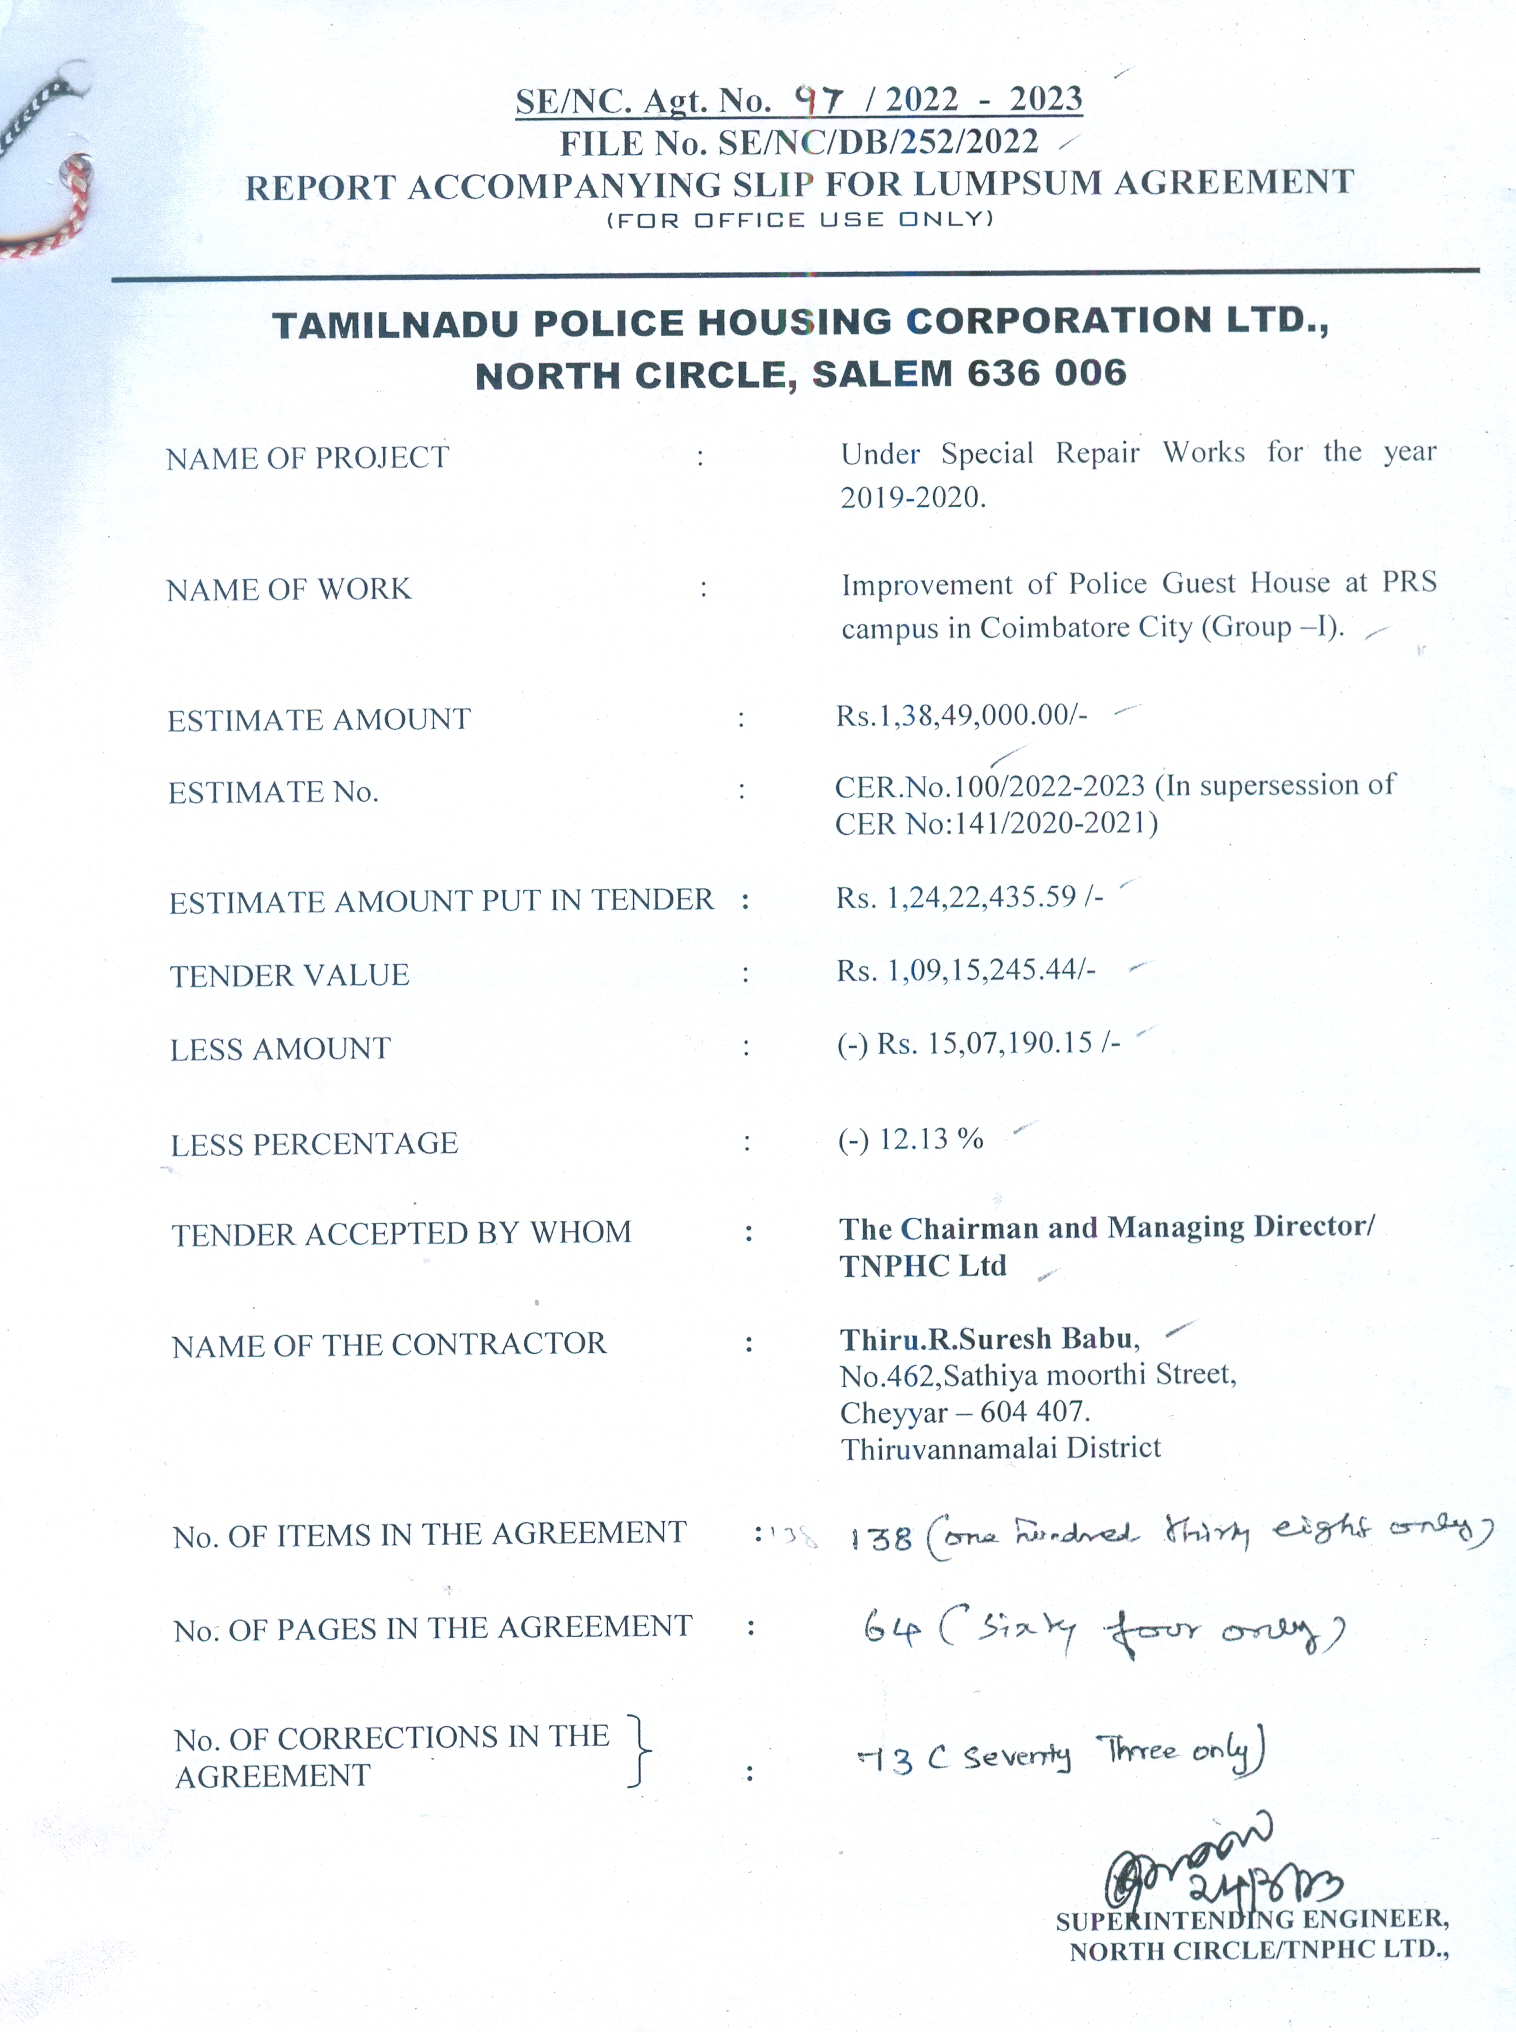 SE/NC. Agt. No. 97 / 2022 - 2023
FILE No. SE/NC/DB/252/2022
REPORT ACCOMPANYING SLIP FOR LUMPSUM AGREEMENT
(FOR OFFICE USE ONLY)
TAMILNADU POLICE HOUSING CORPORATION LTD.,
NORTH CIRCLE, SALEM 636 006
NAME OF PROJECT : Under Special Repair Works for the year
2019-2020.
NAME OF WORK : Improvement of Police Guest House at PRS
campus in Coimbatore City (Group –I).
ESTIMATE AMOUNT : Rs.1,38,49,000.00/-
ESTIMATE No. : CER.No.100/2022-2023 (In supersession of
CER No:141/2020-2021)
ESTIMATE AMOUNT PUT IN TENDER : Rs. 1,24,22,435.59 /-
TENDER VALUE : Rs. 1,09,15,245.44/-
LESS AMOUNT : (-) Rs. 15,07,190.15 /-
LESS PERCENTAGE : (-) 12.13 %
TENDER ACCEPTED BY WHOM : The Chairman and Managing Director/
TNPHC Ltd
NAME OF THE CONTRACTOR : Thiru.R.Suresh Babu,
No.462,Sathiya moorthi Street,
Cheyyar – 604 407.
Thiruvannamalai District
No. OF ITEMS IN THE AGREEMENT : 138 138 (one hundred thirty eight only)
No. OF PAGES IN THE AGREEMENT : 64 (Sixty four only)
No. OF CORRECTIONS IN THE
AGREEMENT : 73 (Seventy Three only)
SUPERINTENDING ENGINEER,
NORTH CIRCLE/TNPHC LTD.,